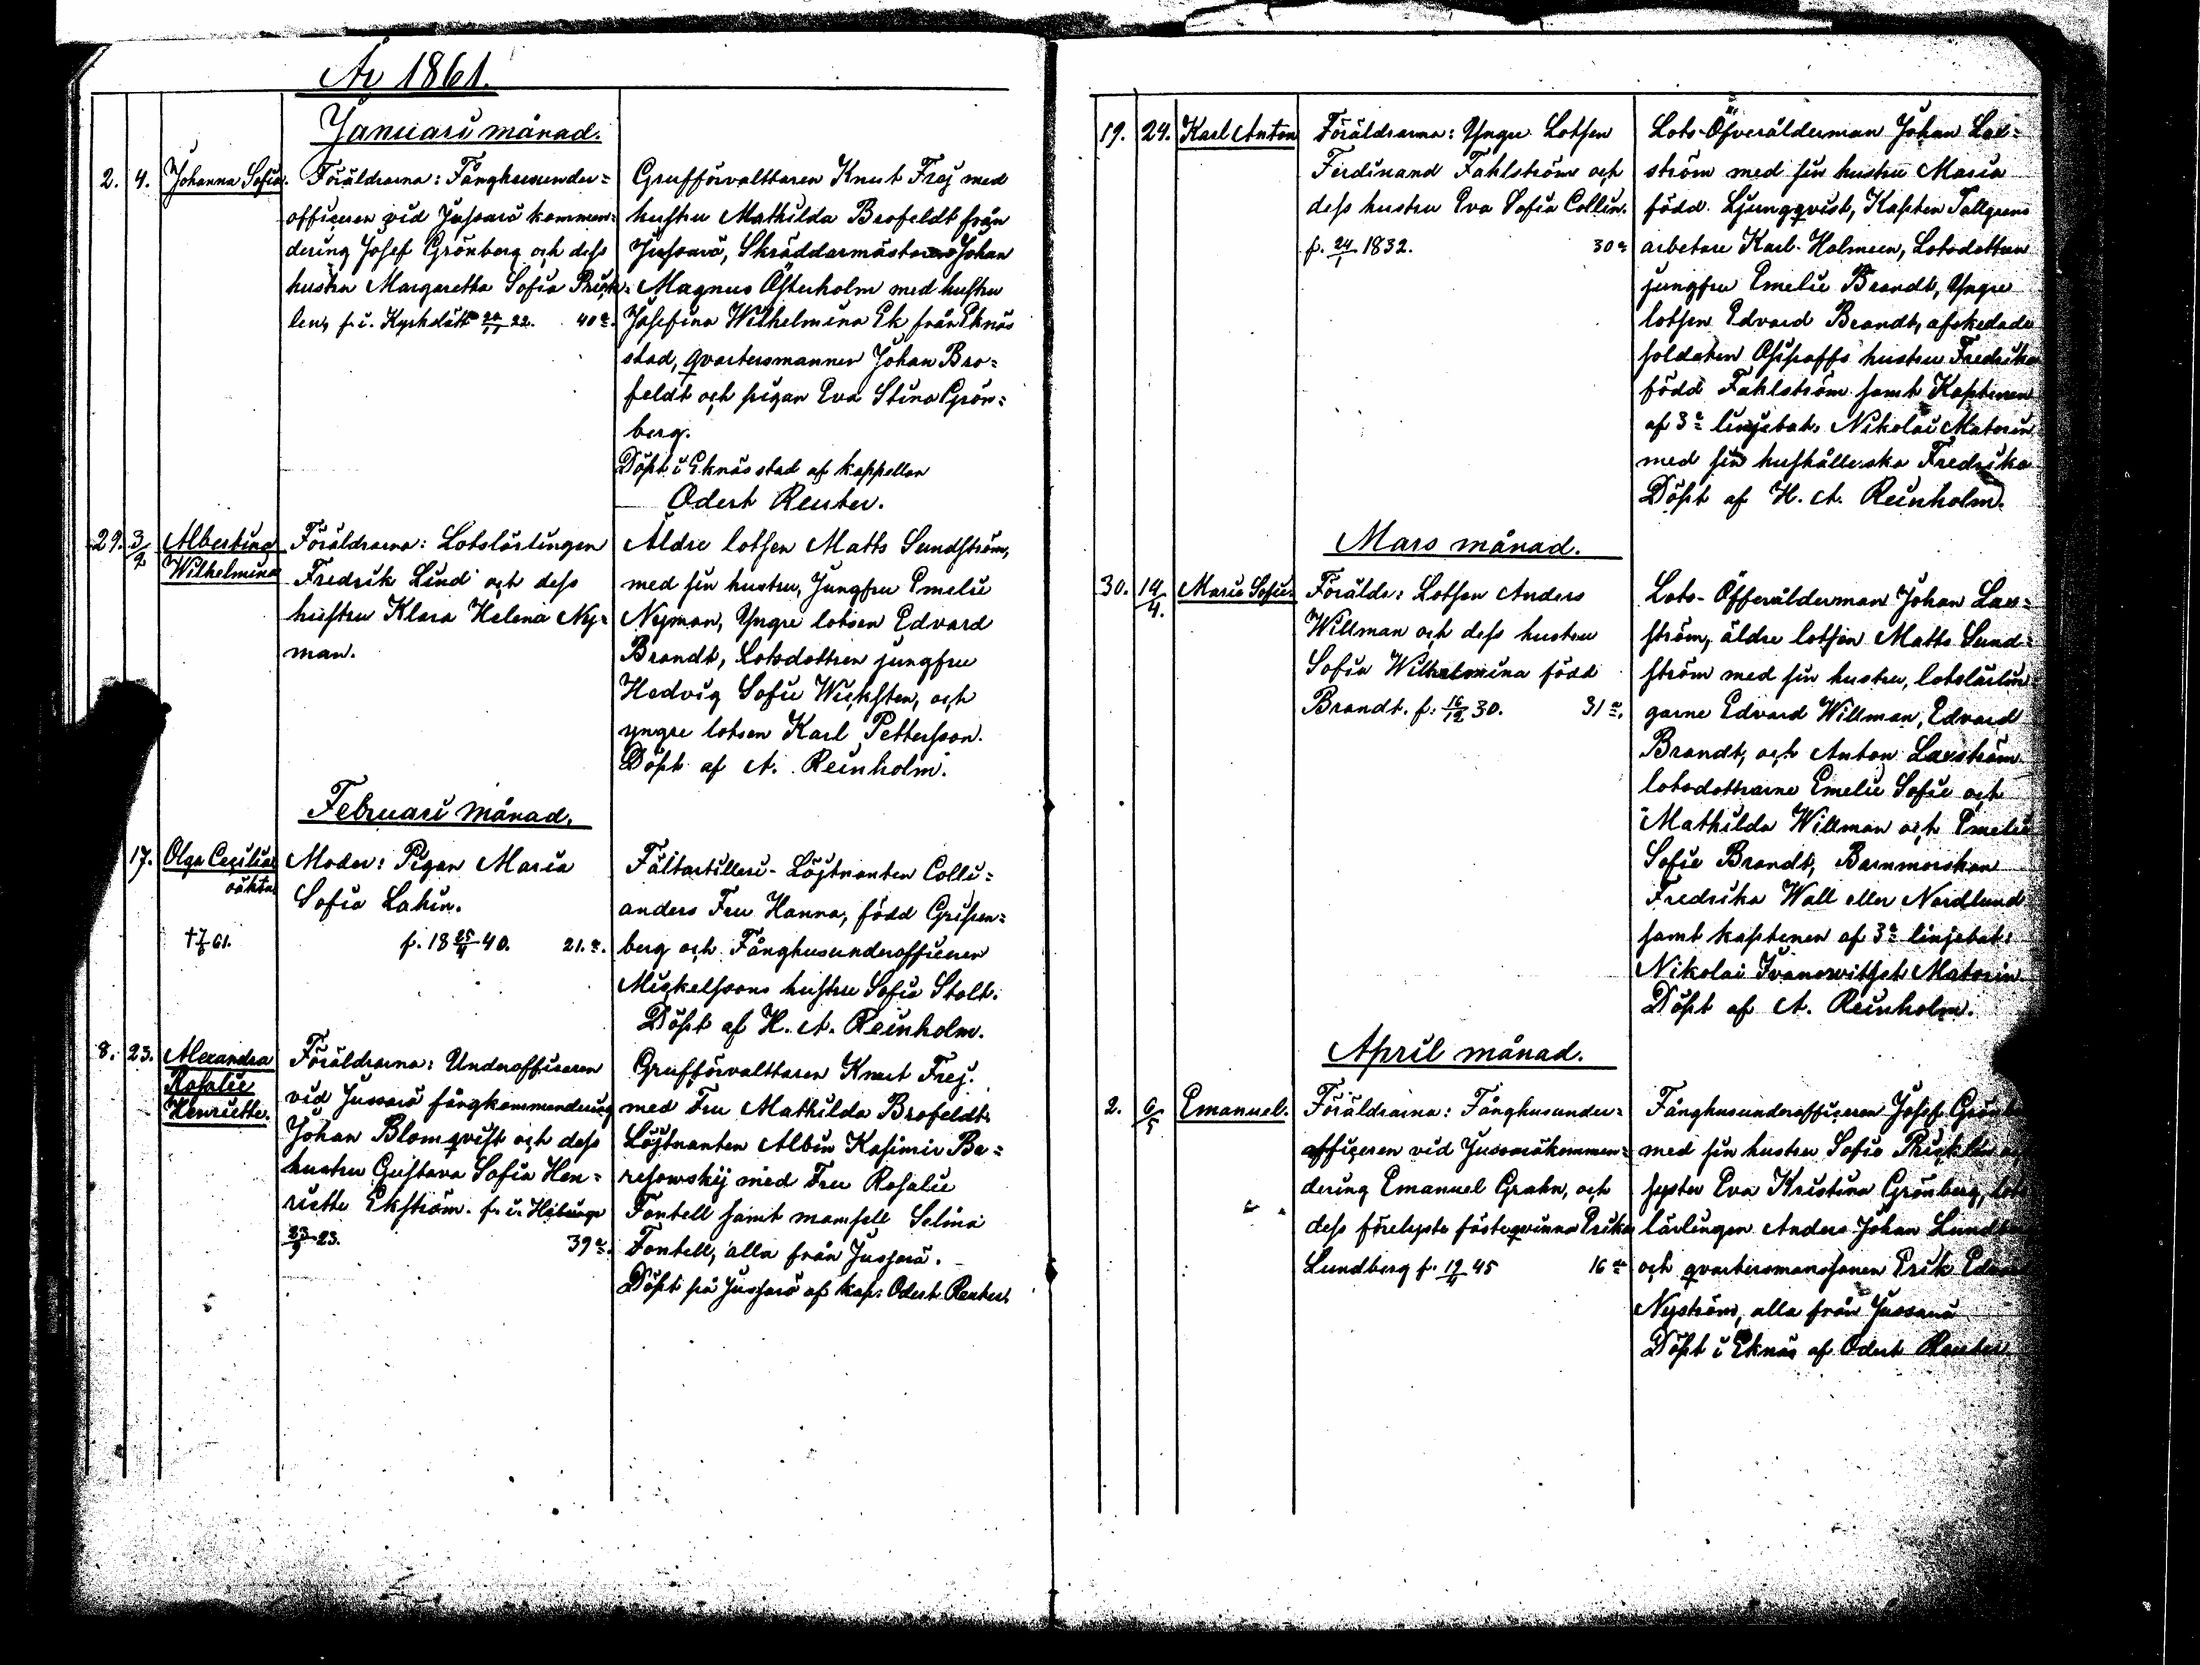 År 1861.
Januari månad.
2. 4. Johanna Sofia. Föräldrarna: Fånghusunder=
officeren vid Jussarö kommen=
dering Josef Grönberg och dess
hustru Margaretha Sofia Prick=
len, f. i. Kyrkslätt 22. 40 a.
Grufförvaltaren Knut Frej med
hustru Mathilda Brofeldt från
Jussarö, Skräddarmästaren Johan
Magnus Österholm med hustru
Josefina Wilhelmina Ek från Eknäs
stad, qvartersmannen Johan Bro=
feldt och pigan Eva Stina Grön=
berg.
Döpt i Eknäs stad af kappellan
Odert Reuter.
29. 3/2 Albertina
Wilhelmina
Föräldrarna: Lotslärlingen
Fredrik Lind och dess
hustru Klara Helena Ny=
man.
Äldre lotsen Matts Sundström,
med sin hustru, Jungfru Emelie
Nyman, Yngre lotsen Edvard
Brandt, Lotsdottren jungfru
Hedvig Sofie Wicksten, och
yngre lotsen Karl Pettersson.
Döpt af A. Reinholm.
Februari månad.
17. Olga Cecilia
oäkta
†7/5 61.
Moder: Pigan Maria
Sofia Lahin.
f. 18 25/4 40. 21. a.
Fältartilleri-Löjtnanten Colli=
anders Fru Hanna, född Gripen=
berg och Fånghusunderofficeren
Mickelssons hustru Sofia Stolt.
Döpt af H. A. Reinholm.
8. 23. Alexandra
Rosalie
Henriette.
Föräldrarna: Underofficeren
vid Jussarö fångkommendering
Johan Blomqvist och dess
hustru Gustava Sofia Hen=
riette Ekström. f. i.
23/9 23. 39 a.
Grufförvaltaren Knut Frej.
med Fru Mathilda Brofeldt
Löjtnanten Albin Kasimir Be=
resowskij med Fru Rosalie
Fontell samt mamsell Selina
Fontell, alla från Jussarö.
Döpt på Jussarö af kap: Odert Reuter.
19. 24. Karl Anton
Föräldrarna: Yngre Lotsen
Ferdinand Fahlström och
dess hustru Eva Sofia Collin.
f. 24/1 1832. 30 a
Lots-Öfverålderman Johan Lax=
ström med sin hustru Maria
född Ljungqvist, Kapten Tallgrens
arbetare Karl Holmeen, Lotsdottren
jungfru Emelie Brandt, Yngre
lotsen Edvard Brandt, afskedade
soldaten Ossipoffs hustru Fredrika
född Fahlström samt Kaptenen
af 3e linjebat. Nikolai Matorin
med sin hushållerska Fredrika
Döpt af H. A. Reinholm.
Mars månad.
30. 14/4. Maria Sofia.
Föräldr: Lotsen Anders
Willman och dess hustru
Sofia Wilhelmina född
Brandt. f. 16/12 30. 31 a.
Lots-Öfferålderman Johan Lax=
ström, äldre lotsen Matts Sund=
ström med sin hustru, lotslärlin=
garne Edvard Willman, Edvard
Brandt, och Anton Laxström
lotsdottrarne Emelie Sofie och
Mathilda Willman och Emelie
Sofie Brandt, Barnmorskan
Fredrika Wall eller Nordlund
samt kaptenen af 3e linjebat:
Nikolai Ivanowitsch Matorin
Döpt af A. Reinholm.
April månad.
2. 6/5 Emanuel.
Föräldrarna: Fånghusunder=
officeren vid Jussarökommen=
dering Emanuel Grahn, och
dess förelupte fästeqvinna Erika
Lundberg f. 19/4 45 16 a
Fånghusunderofficeren Josef
med sin hustru Sofia Pricklén
syster Eva Kristina Grönberg,
lärlingen Anders Johan
och qvartersmanssonen Erik
Nyström, alla från Jussarö
Döpt i Eknäs af Odert Reuter